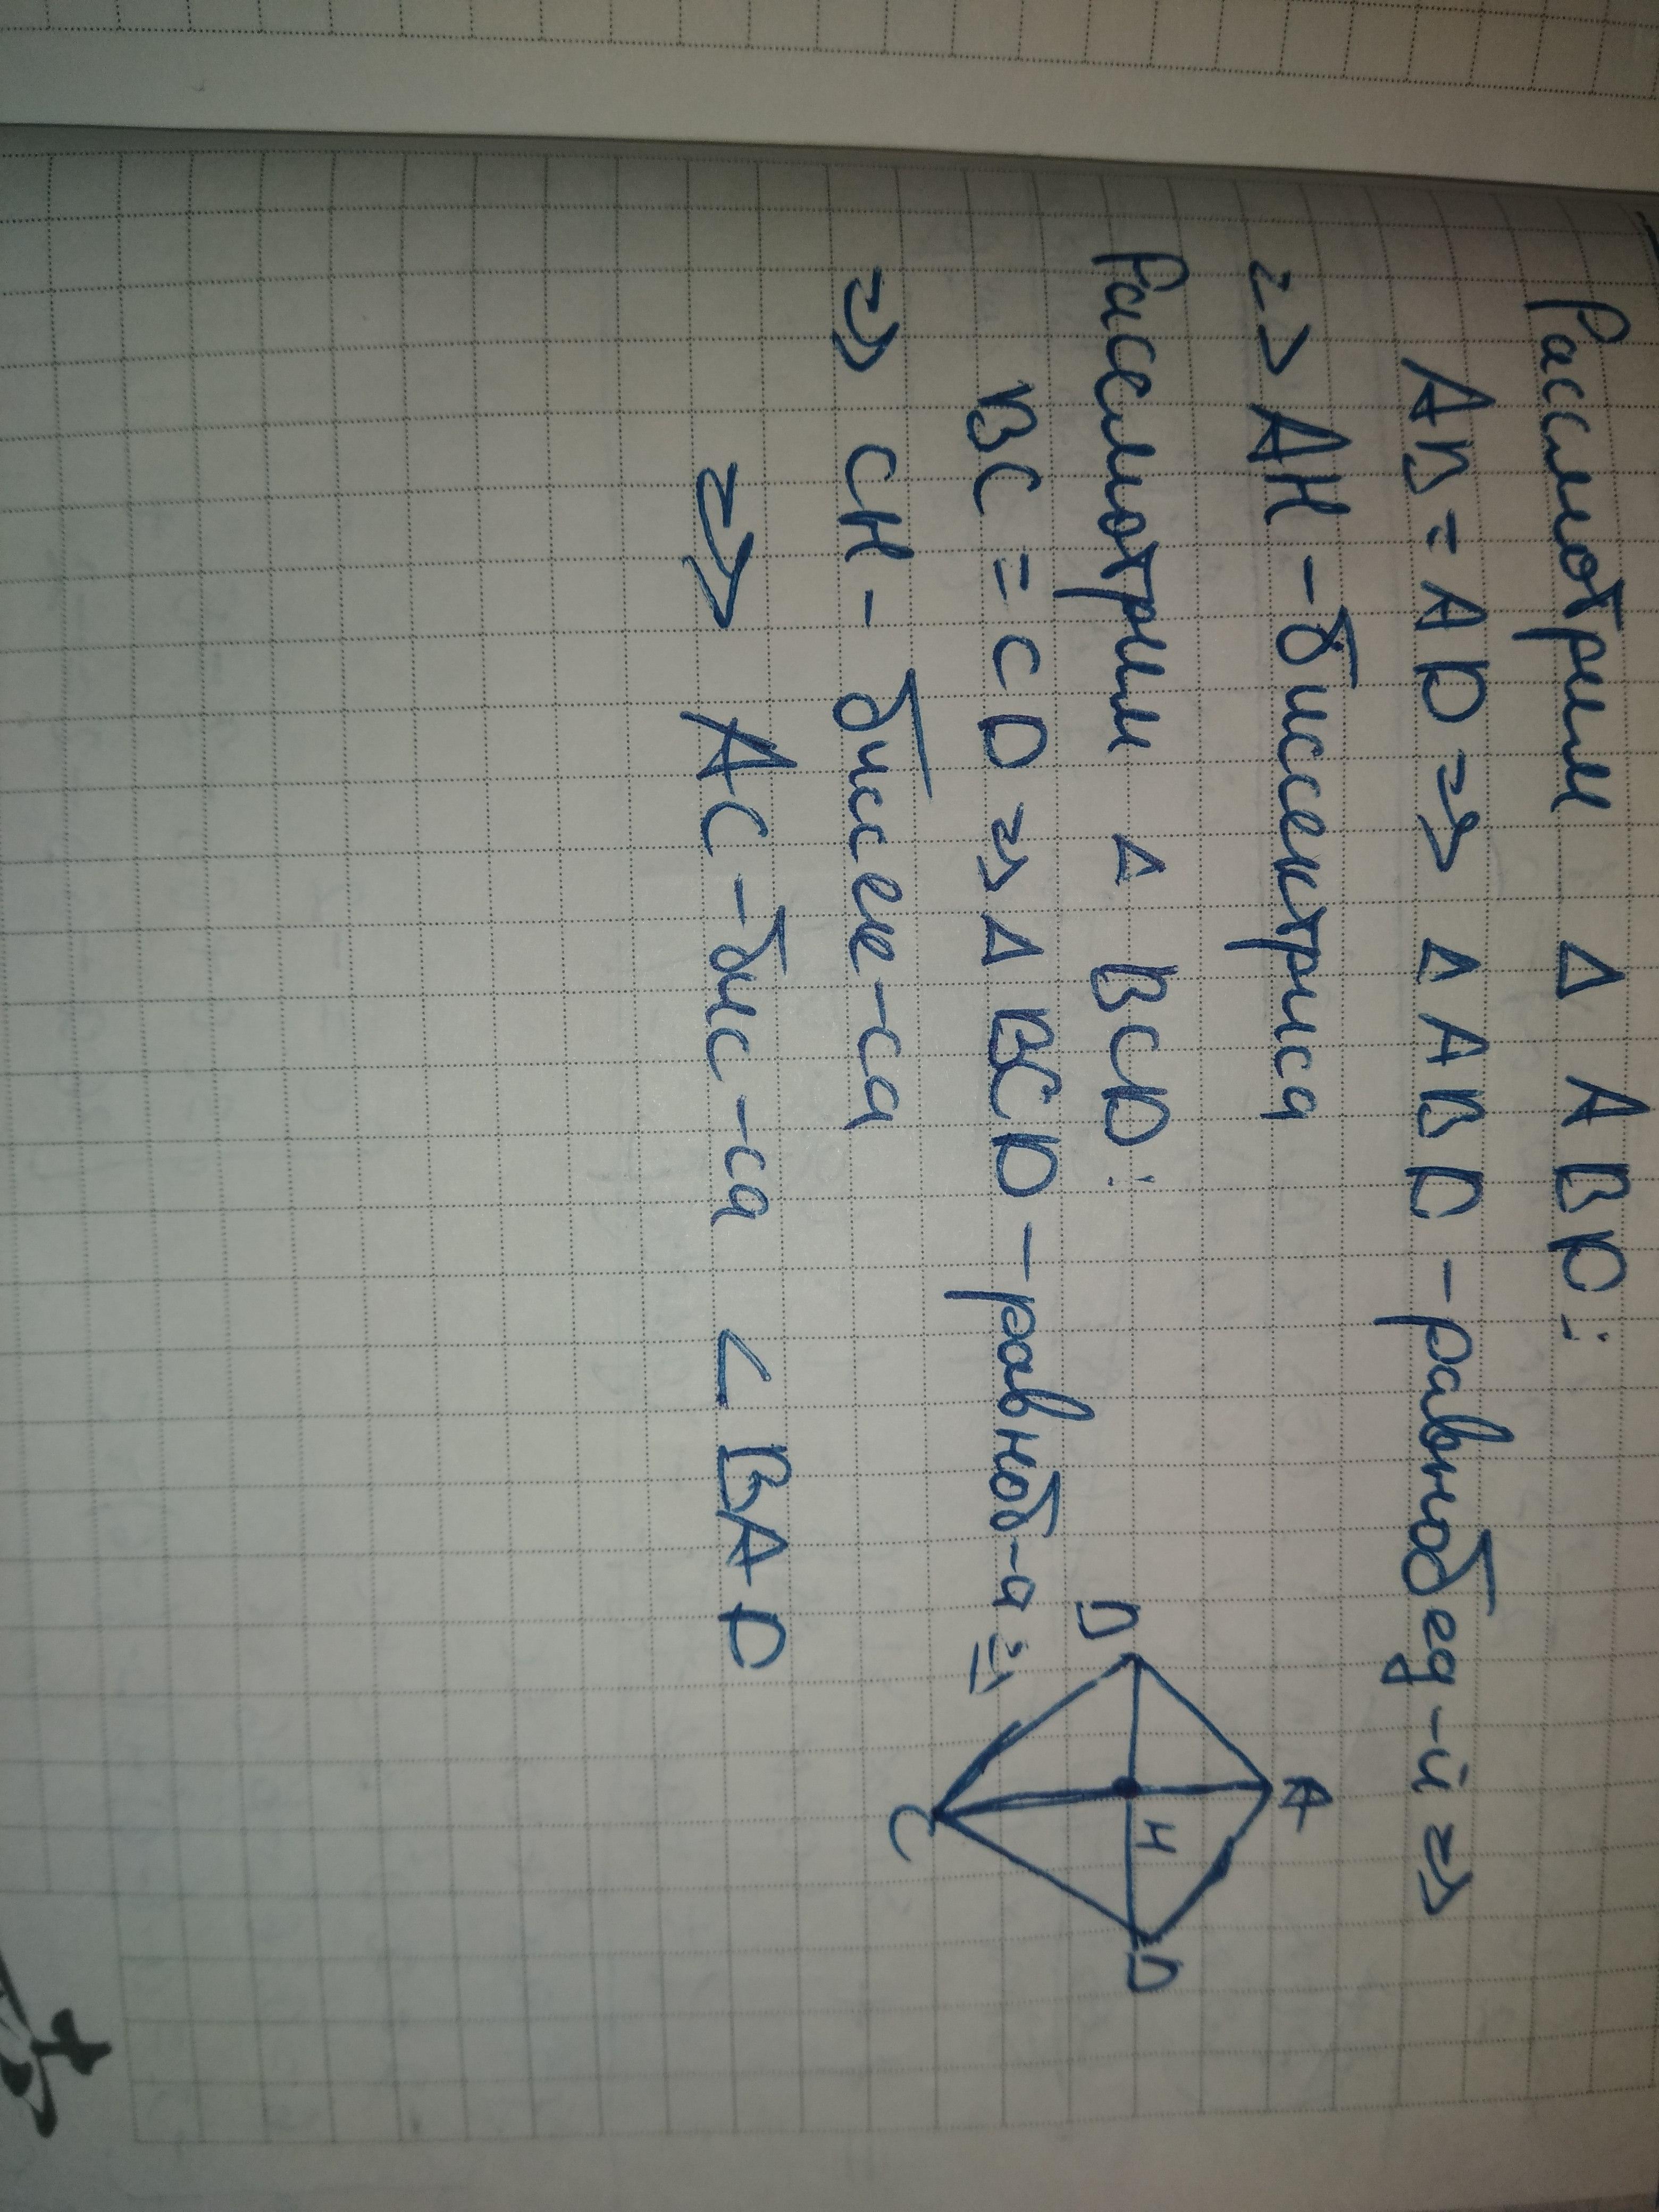 Рассмотрим △ ABD:
AB = AD => △ ABD - равнобед-й =>
=> AH - биссектриса
Рассмотрим △ BCD:
BC = CD => △ BCD - равноб-й =>
=> CH - биссек-са
=> AC - бис-са < BAD
A
D
H
D
C